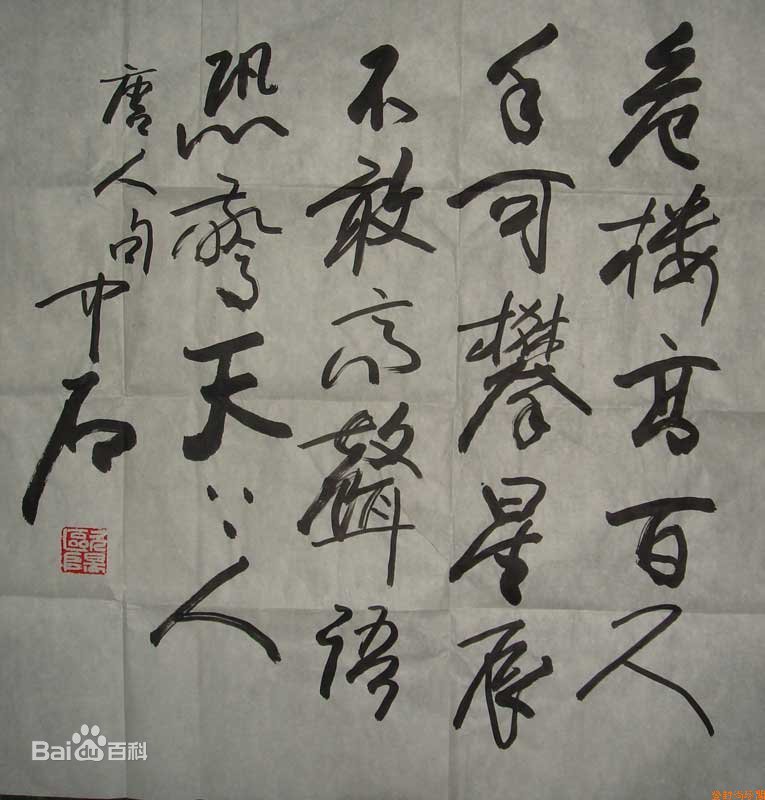 危楼高百尺
手可攀星辰
不敢高聲语
恐驚天上人
唐人句 中石
Bai du 百科